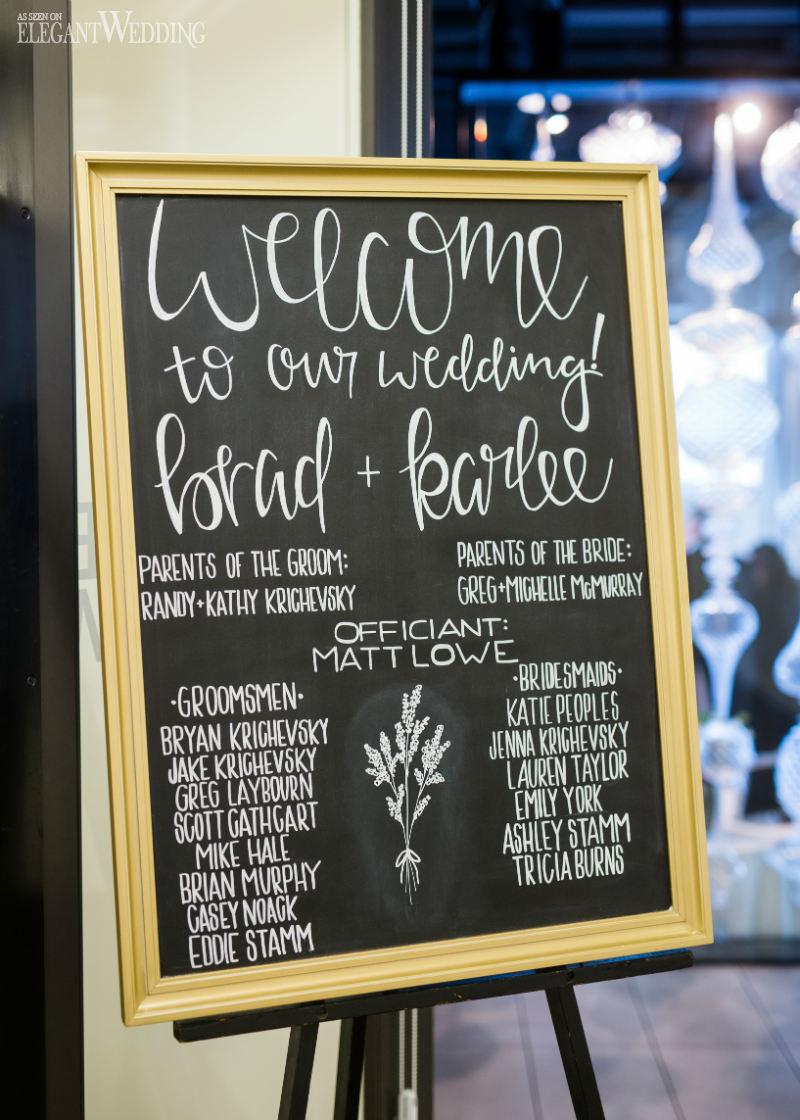 AS SEEN ON
ELEGANTWEDDING
welcome
to our wedding!
brad + karlee
PARENTS OF THE GROOM:
RANDY+KATHY KRICHEVSKY
PARENTS OF THE BRIDE:
GREG+MICHELLE McMURRAY
OFFICIANT:
MATT LOWE
·GROOMSMEN·
BRYAN KRICHEVSKY
JAKE KRICHEVSKY
GREG LAYBOURN
SCOTT CATHCART
MIKE HALE
BRIAN MURPHY
CASEY NOACK
EDDIE STAMM
·BRIDESMAIDS·
KATIE PEOPLES
JENNA KRICHEVSKY
LAUREN TAYLOR
EMILY YORK
ASHLEY STAMM
TRICIA BURNS